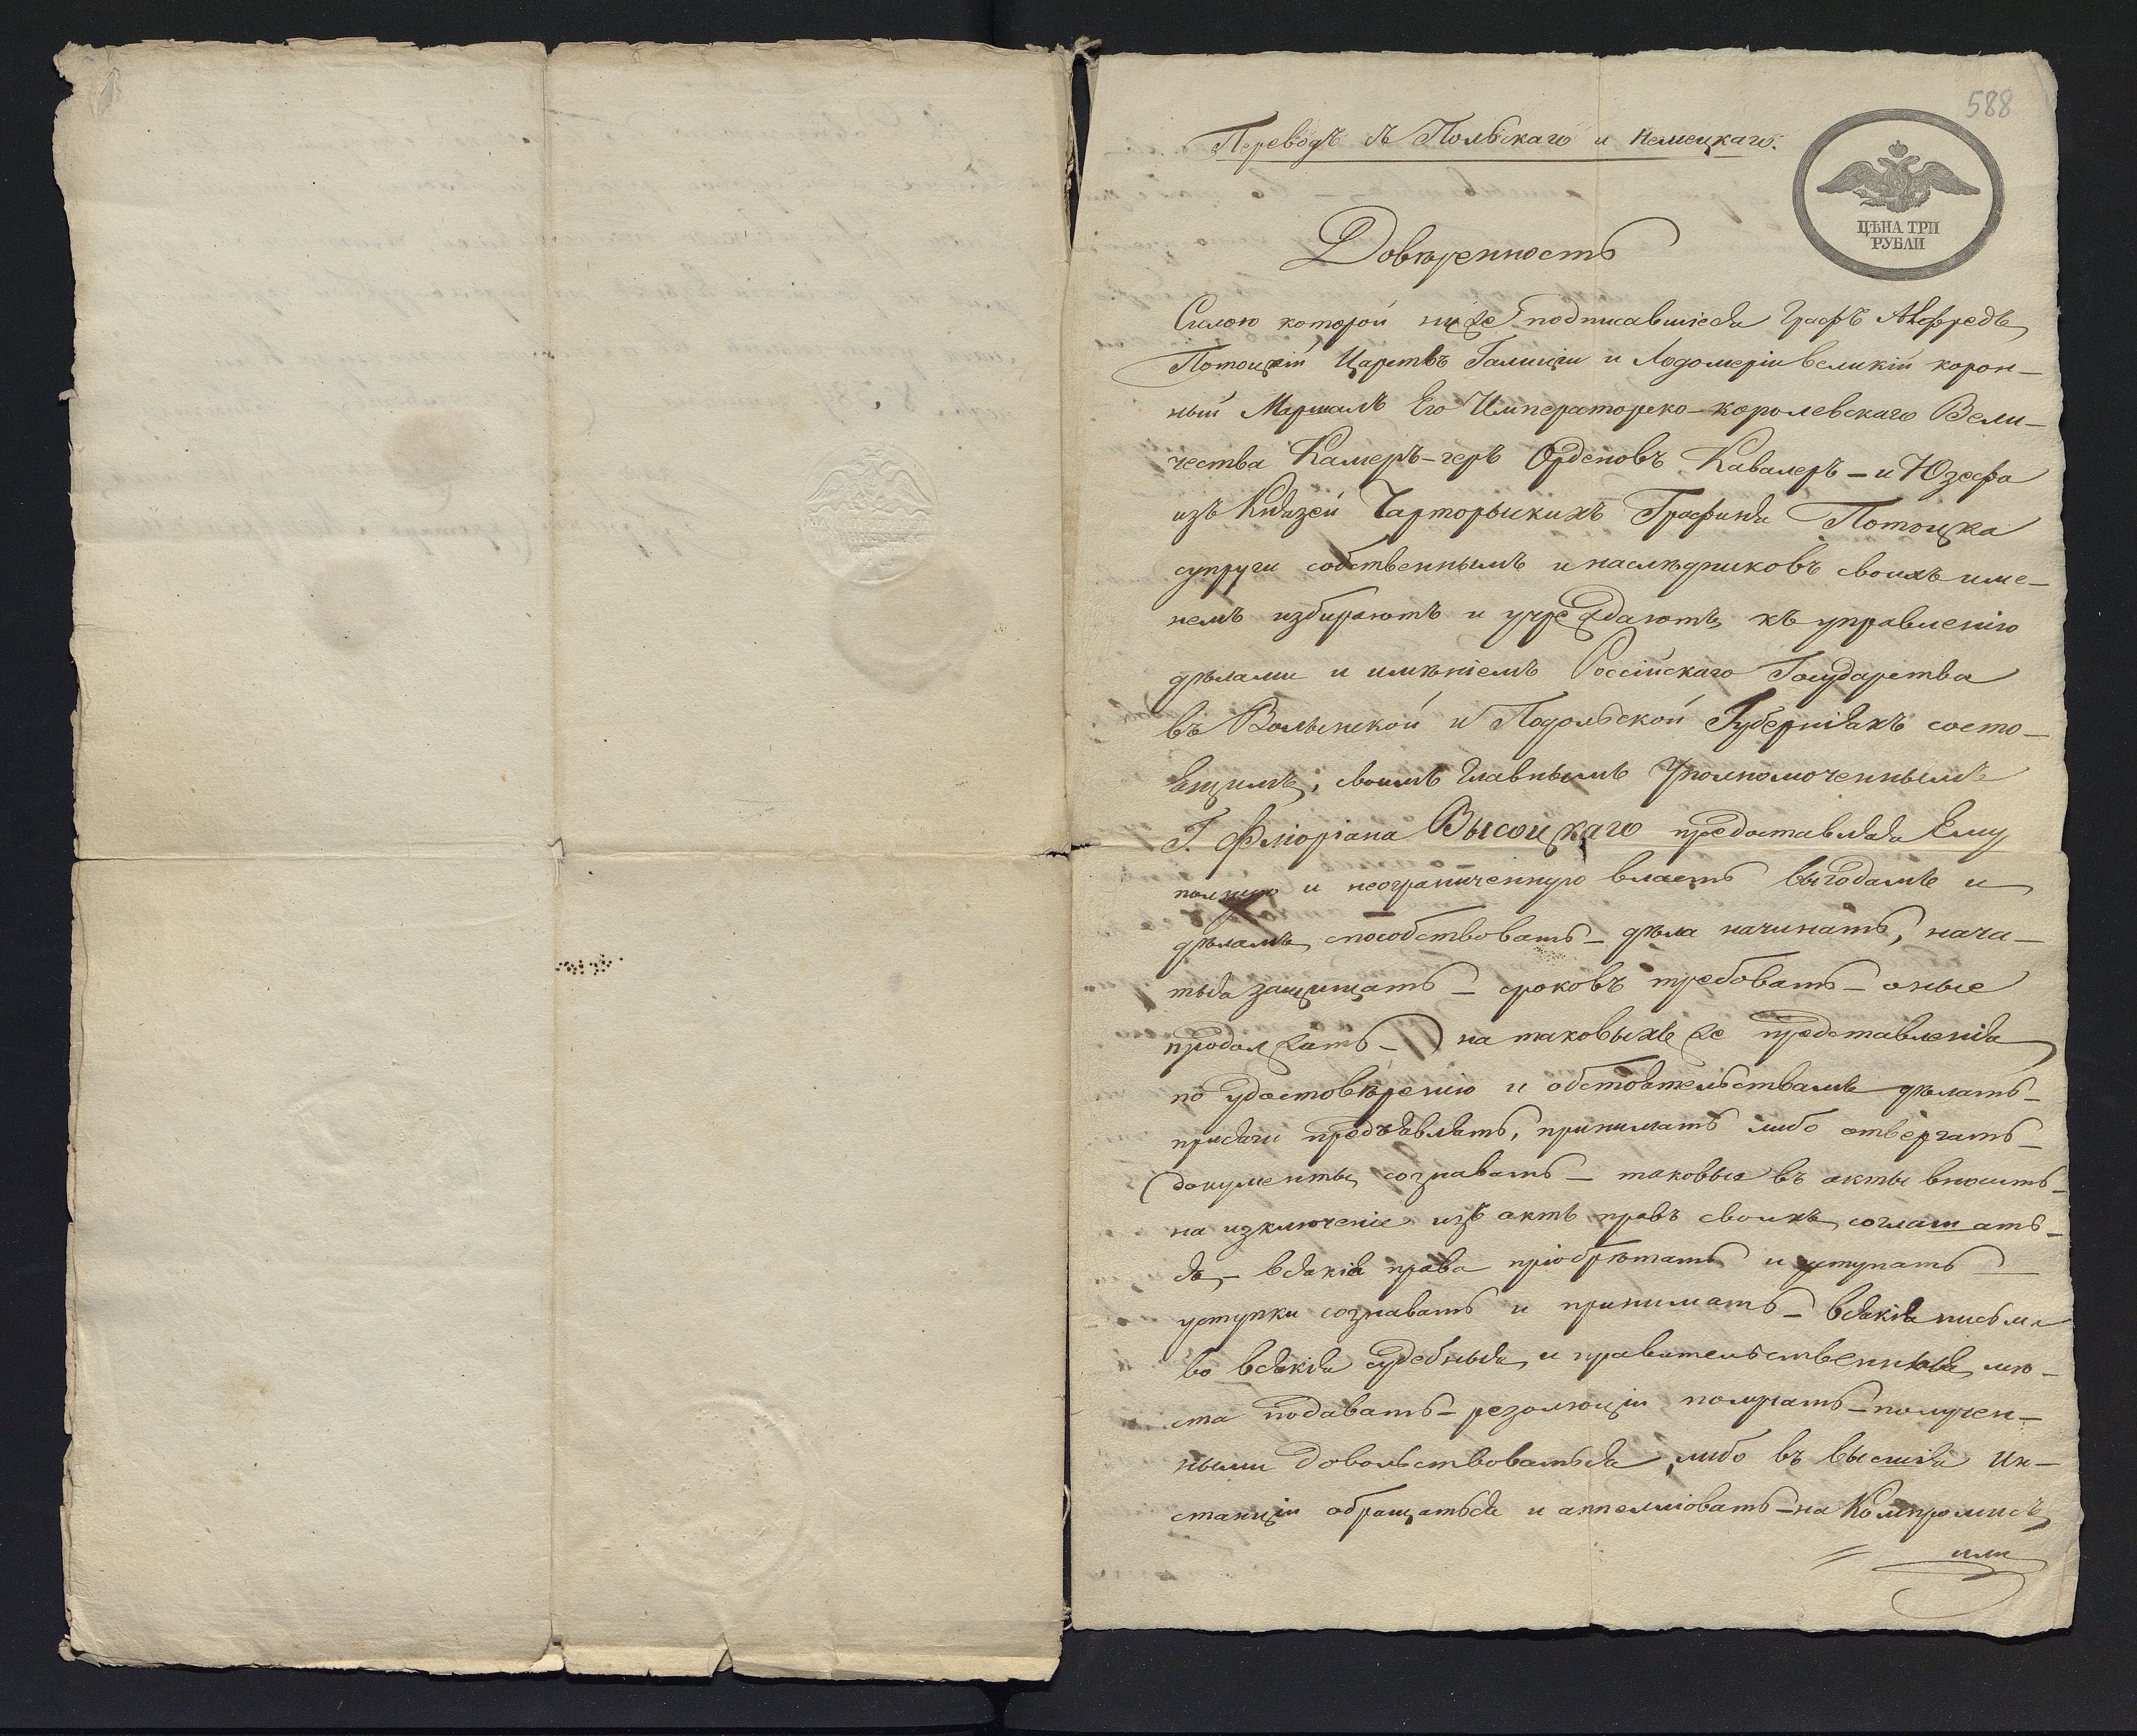 588
Переводъ съ Польскаго и Немецкаго.
ЦѢНА ТРИ
РУБЛИ
Довѣренность
Силою которой ниже подписавшіеся Графъ Альфредъ
Потоцкій Царствъ Галиціи и Лодомеріи великій корон-
ный Маршалъ Его Императорско-королевскаго Вели-
чества Камеръ-геръ Орденовъ Кавалеръ - и Юзефа
изъ Князей Чарторыскихъ Графиня Потоцка
супруги собственнымъ и наслѣдниковъ своихъ име-
немъ избираютъ и учреждаютъ къ управленію
дѣлами и имѣніемъ Россійскаго Государства
въ Волынской и Подольской Губерніяхъ состо-
ящимъ, своимъ Главнымъ Уполномоченнымъ
Г. Флоріана Высоцкаго предоставляя Ему
полную и неограниченную власть выгодамъ и
дѣламъ способствовать - дѣла начинать, нача-
тыя защищать - сроковъ требовать - оные
продолжать - на таковыхъ же представленія
по удостовѣренію и обстоятельствамъ дѣлать -
присяги предъявлять, принимать либо отвергать -
документы сознавать - таковыя въ акты вносить -
на изключеніе изъ актъ правъ своихъ соглашать-
ся - всякія права пріобрѣтать и уступать -
уступки сознавать и принимать - всякія письма
во всякія судебныя и правительственныя мѣ-
ста подавать - резолюціи получать - получен-
ными довольствоваться, либо въ высшія Ин-
станціи обращаться и аппелліовать - на Компромисъ
или